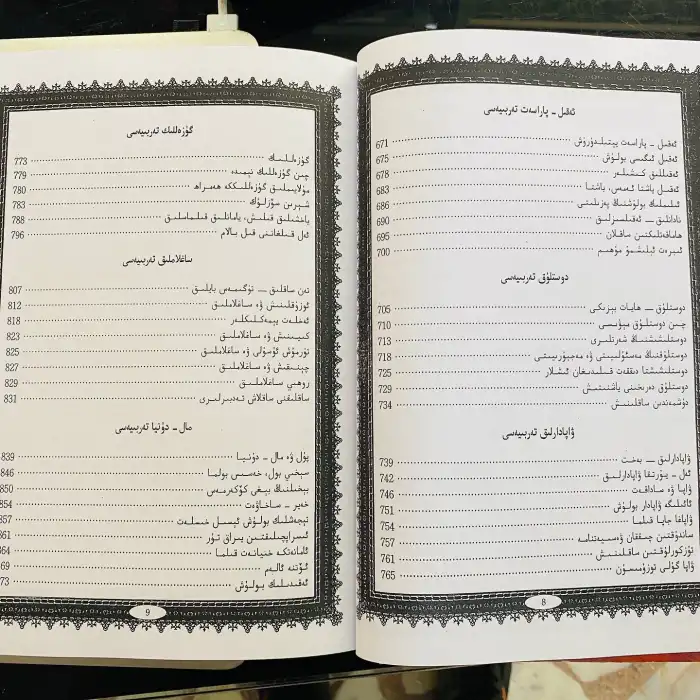 ئەقىل - پاراسەت تەربىيەسى
ئەقىل - پاراسەت يېتىلدۈرۈش 671
ئەقىل ئىگىسى بولۇش 675
ئەقىللىق كىشىلەر 678
ئەقىل ياشتا ئەمەس، باشتا 683
ئىلىملىك بولۇشنىڭ پەزىلىتى 686
نادانلىق — ئەقىلسىزلىق 690
ھاماقەتلىكتىن ساقلان 695
ئىبرەت ئېلىشمۇ مۇھىم 700
دوستلۇق تەربىيەسى
دوستلۇق — ھايات بېزىكى 705
چىن دوستلۇق مېۋىسى 710
دوستلىشىشنىڭ شەرتلىرى 713
دوستلۇقنىڭ مەسئۇلىيىتى ۋە مەجبۇرىيىتى 718
دوستلىشىشتا دىققەت قىلىدىغان ئىشلار 725
دوستلۇق دەرىخىنى ياشنىتىش 729
دۈشمەندىن ساقلىنىش 734
ۋاپادارلىق تەربىيەسى
ۋاپادارلىق — بەخت 739
ئەل - يۇرتقا ۋاپادارلىق 742
ۋاپا ۋە ساداقەت 746
ئائىلىگە ۋاپادار بولۇش 751
ۋاپاغا جاپا قىلما 754
ساندۇقتىن چىققان ۋەسىيەتنامە 757
تۇزكورلۇقتىن ساقلىنىش 761
ۋاپا گۈلى توزۇمىسۇن 765
8
گۈزەللىك تەربىيەسى
گۈزەللىك 773
چىن گۈزەللىك نېمىدە 779
مۇلايىملىق گۈزەللىككە ھەمراھ 780
شېرىن سۆزلۈك 783
ياخشىلىق قىلىش، يامانلىق قىلماسلىق 788
ئەل قىلغاننى قىل بالام 796
ساغلاملىق تەربىيەسى
تەن ساقلىق — تۈگىمەس بايلىق 807
ئوزۇقلىنىش ۋە ساغلاملىق 812
ئەخلەت يېمەكلىكلەر 818
كىيىنىش ۋە ساغلاملىق 823
تۇرمۇش ئۇسۇلى ۋە ساغلاملىق 825
چېنىقىش ۋە ساغلاملىق 827
روھىي ساغلاملىق 829
ساقلىقنى ساقلاش تەدبىرلىرى 831
مال - دۇنيا تەربىيەسى
پۇل ۋە مال - دۇنيا 839
سېخىي بول، خەسىس بولما 846
بېخىلنىڭ بېغى كۆكەرمەس 850
خەير - ساخاۋەت 854
تېجەشلىك بولۇش ئېسىل خىسلەت 857
ئىسراپچىلىقتىن يىراق تۇر 861
ئامانەتكە خىيانەت قىلما 864
ئۆتنە ئالەم 69
ئەقىدىلىك بولۇش 73
9